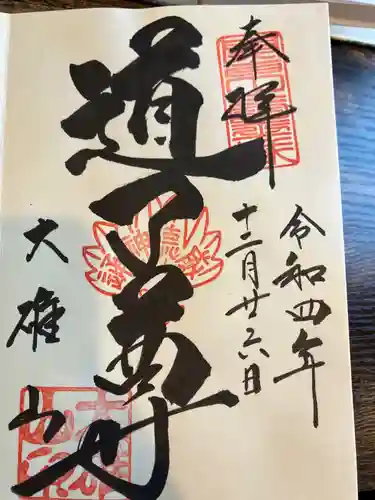 奉拝
令和四年
十二月廿六日
道了尊
大雄山